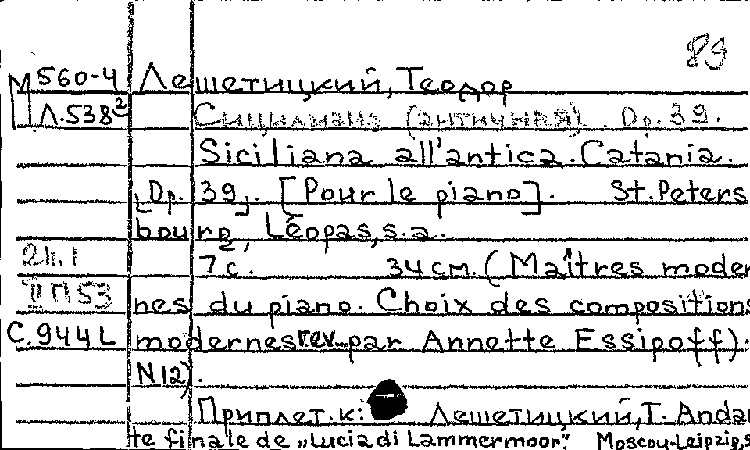 89
М560-4 Лешетицкий, Теодор
Л.538² Сицилиана (античная). Op. 39.
Siciliana all'antica. Catania.
[Op. 39]. [Pour le piano]. St. Peters
bourg, Léopas, s.a.
7 с. 34 см. (Maîtres moder
II П 53 nes du piano. Choix des compositions
С.944L modernes rev. par Annette Essipoff).
N 12).
Приплет. к: Лешетицкий, Т. Andan
te finale de „Lucia di Lammermoor." Moscou-Leipzig, s